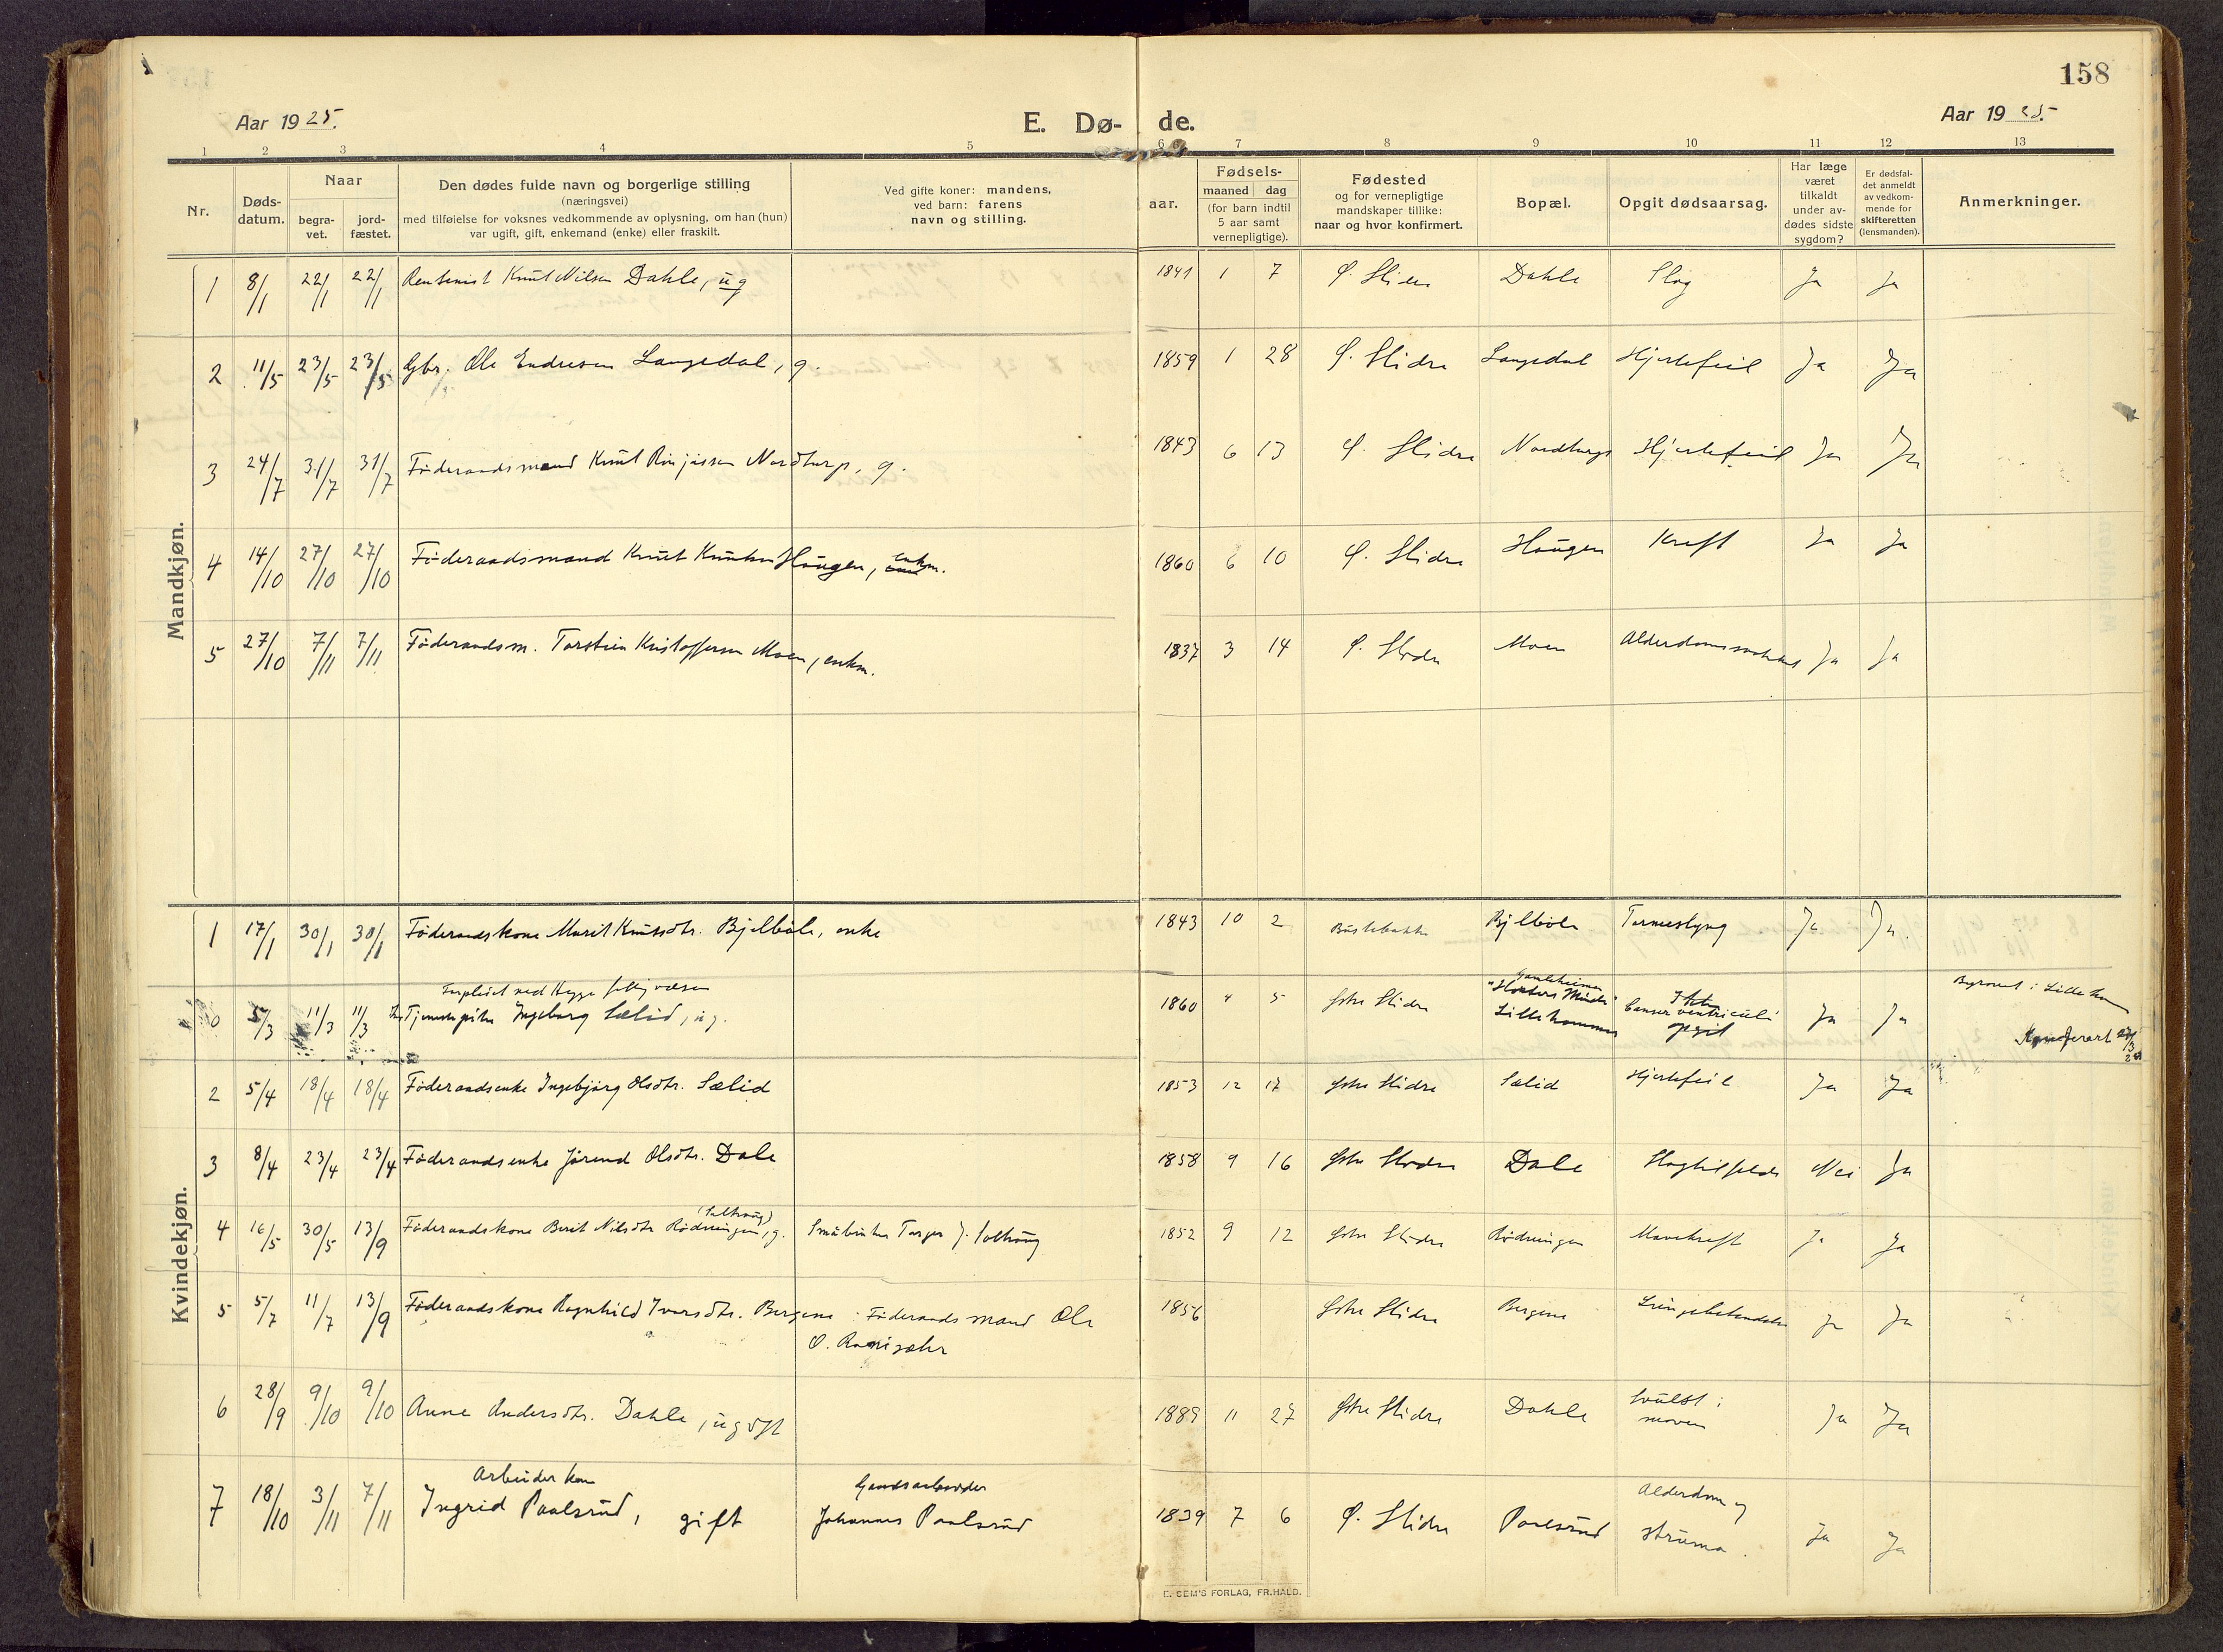 158
Aar 1925.
E. Dø- de.
Aar 1925.
1 2 3 4 5 6 7 8 9 10 11 12 13
Nr.
Døds-
datum.
Naar
begra-
vet.
jord-
fæstet.
Den dødes fulde navn og borgerlige stilling
(næringsvei)
med tilføielse for voksnes vedkommende av oplysning, om han (hun)
var ugift, gift, enkemand (enke) eller fraskilt.
Ved gifte koner: mandens,
ved barn: farens
navn og stilling.
aar.
Fødsels-
maaned dag
(for barn indtil
5 aar samt
vernepligtige).
Fødested
og for vernepligtige
mandskaper tillike:
naar og hvor konfirmert.
Bopæl.
Opgit dødsaarsag.
Har læge
været
tilkaldt
under av-
dødes sidste
sygdom?
Er dødsfal-
det anmeldt
av vedkom-
mende for
skifteretten
(lensmanden).
Anmerkninger.
Mandkjøn.
1 8/1 22/1 22/1 Rentenist Knut Nilsen Dahle, ug 1841 1 7 Ø. Slidre Dahle Slag Ja Ja
2 11/5 23/5 23/5 Gbr. Ole Endresen Langedal, g. 1859 1 28 Ø. Slidre Langedal Hjertefeil Ja Ja
3 24/7 31/7 31/7 Føderaadsmand Knut Nordtorp, g. 1843 6 13 Ø. Slidre Nordtorp Hjertefeil Ja Ja
4 14/10 27/10 27/10 Føderaadsmand Knut Knutsen Haugen, enkm. 1860 6 10 Ø. Slidre Haugen Kreft Ja Ja
5 27/10 7/11 7/11 Føderaadsm. Torstein Kristoffersen Moen, enkm. 1837 3 14 Ø. Slidre Moen Alderdomssvakhet Ja Ja
Kvindekjøn.
1 17/1 30/1 30/1 Føderaadskone Marit Knutsdtr. Bjelbøle, enke 1843 10 2 Bjelbøle Tarmeslyng Ja Ja.
0 5/3 11/3 11/3 Tjenestepike Ingeborg Sælid, ug. 1860 4 5 Østre Slidre
Lillehammer
Cancer ventriculi
opgit Ja Ja
Begravet i Lillehammer
2 5/4 18/4 18/4 Føderaadsenke Ingebjørg Olsdtr. Sælid 1853 12 17 Østre Slidre Sælid Hjertefeil Ja Ja
3 8/4 23/4 23/4 Føderaadsenke Jørend Olsdtr. Dale 1858 9 16 Østre Slidre Dale Slagtilfelde Nei Ja
4 16/5 30/5 13/9 Føderaadskone Berit Nilsdtr. Rødningen, g. Småbruker Torger J. 1852 9 12 Østre Slidre Rødningen Mavekreft Ja Ja
5 5/7 11/7 13/9 Føderaadskone Ragnhild Ivarsdtr. Bergene Føderaadsmand Ole
O. 1856 Østre Slidre Bergene Lungebetendelse Ja Ja
6 28/9 9/10 9/10 Anne Andersdtr. Dahle, ugift 1889 11 27 Østre Slidre Dahle Svulst i
maven Ja Ja
7 18/10 3/11 7/11 Arbeiderkone
Ingrid Paalsrud, gift Gaardsarbeider
Johannes Paalsrud 1839 7 6 Ø. Slidre Paalsrud Alderdom og
struma. Ja Ja
E. SEM'S FORLAG, FR.HALD.